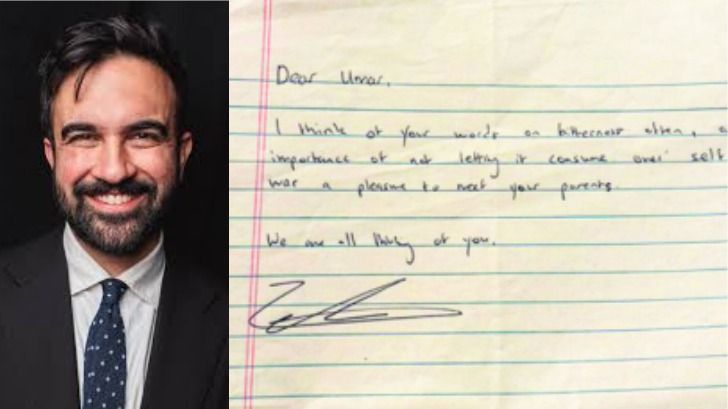 Dear Umar,
I think of your words on bitterness often,
importance of not letting it consume ones' self
was a pleasure to meet your parents.
We are all thinking of you.